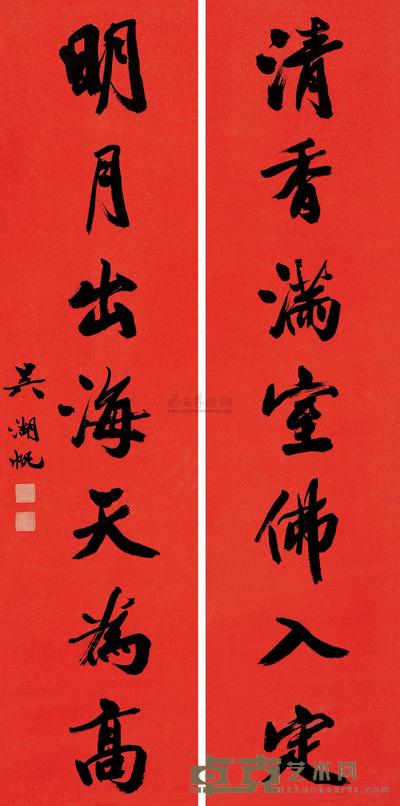 清香滿室佛入定
明月出海天為高
吳湖帆
卓克艺术网